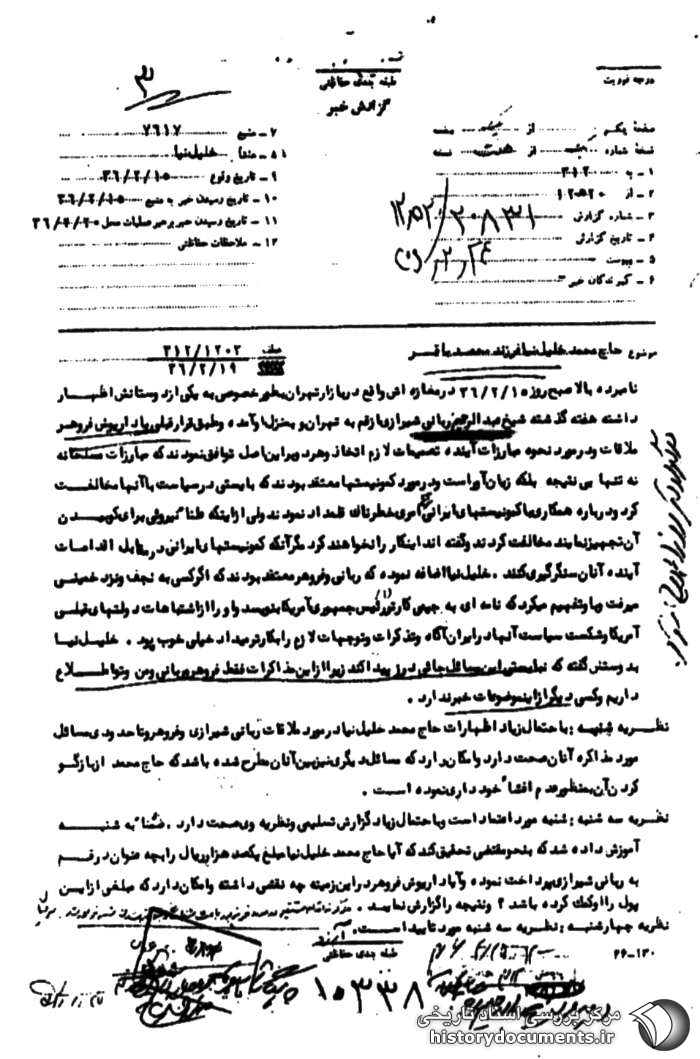 درجه فوریت
طبقه بندی حفاظتی
گزارش خبر
صفحه یکم از یک صفحه
نسخه شماره از هشت نسخه
۱ - به ۳۱۲
۲ - از
۳ - شماره گزارش ۲۰۸۳۱/
۴ - تاریخ گزارش
۵ - پیوست
۶ - گیرندگان خبر
۷ - منبع ۷۶۱۷
۸ - منشا خلیل‌نیا
۹ - تاریخ وقوع ۳۶/۲/۱۵
۱۰ - تاریخ رسیدن خبر به منبع ۳۶/۲/۱۵
۱۱ - تاریخ رسیدن خبر برهبر عملیات محل
۱۲ - ملاحظات حفاظتی
موضوع حاج محمد خلیل‌نیا فرزند محمدباقر
۳۱۲/۱۲۰۲
۳۶/۲/۱۹
نامبرده بالا صبح روز ۳۶/۲/۱۵ در مغازه اش واقع در بازار تهران بطور خصوصی به یکی از دوستانش اظهار
داشته هفته گذشته شیخ عبدالرحیم ربانی شیرازی از قم به تهران و بمنزل او آمده و طبق قرار قبلی با داریوش فروهر
ملاقات و در مورد نحوه مبارزات آینده تصمیمات لازم اتخاذ و هر دو بر این اصل توافق نمودند که مبارزات مسلحانه
نه تنها بی نتیجه بلکه زیان آور است و در مورد کمونیستها معتقد بودند که بایستی در سیاست با آنها مخالفت
کرد و درباره همکاری با کمونیستهای ایرانی امری خطرناک قلمداد نمودند ولی از اینکه طناب نیروئی برای کوبیدن
آن تجهیز نمایند مخالفت کردند و گفته اند اینکار را نخواهند کرد مگر آنکه کمونیستهای ایرانی در مقابل اقدامات
آینده آنان سنگر گیری کنند . خلیل‌نیا اضافه نموده که ربانی و فروهر معتقد بودند که اگر کسی به نجف و نزد خمینی
میرفت و با و تفهیم میکرد که نامه ای به جیمی کارتر رئیس جمهوری آمریکا بنویسد و او را از اشتباهات دولتهای قبلی
آمریکا و شکست سیاست آنها در ایران آگاه و تذکرات و توجیهات لازم را بکار ترمیداد خیلی خوب بود . خلیل‌نیا
بدوستش گفته که نبایستی این مسائل جائی درز پیدا کند زیرا از این مذاکرات فقط فروهر و ربانی و من و تو اطلاع
داریم و کسی دیگر از اینموضوعات خبر ندارد .
نظریه شنبه : با احتمال زیاد اظهارات حاج محمد خلیل‌نیا در مورد ملاقات ربانی شیرازی و فروهر و تا حدودی مسائل
مورد مذاکره آنان صحت دارد و امکان دارد که مسائل دیگری نیز بین آنان مطرح شده باشد که حاج محمد از بازگو
کردن آن بمنظور عدم افشاء خودداری نموده است .
نظریه سه شنبه : شنبه مورد اعتماد است و با احتمال زیاد گزارش تسلیمی و نظریه وی صحت دارد . ضمنا به شنبه
آموزش داده شد که بنحو مقتضی تحقیق کند که آیا حاج محمد خلیل‌نیا مبلغ یکصد هزار ریال را بچه عنوان در قم
به ربانی شیرازی پرداخت نموده و آیا داریوش فروهر در این زمینه چه نقشی داشته و امکان دارد که مبلغی از این
پول را او کمک کرده باشد ؟ و نتیجه را گزارش نماید .
نظریه چهارشنبه : نظریه سه شنبه مورد تایید است .
طبقه بندی حفاظتی
۲۶-۱۳۰
۱۰۳۳۸
مرکز بررسی اسناد تاریخی
historydocuments.ir